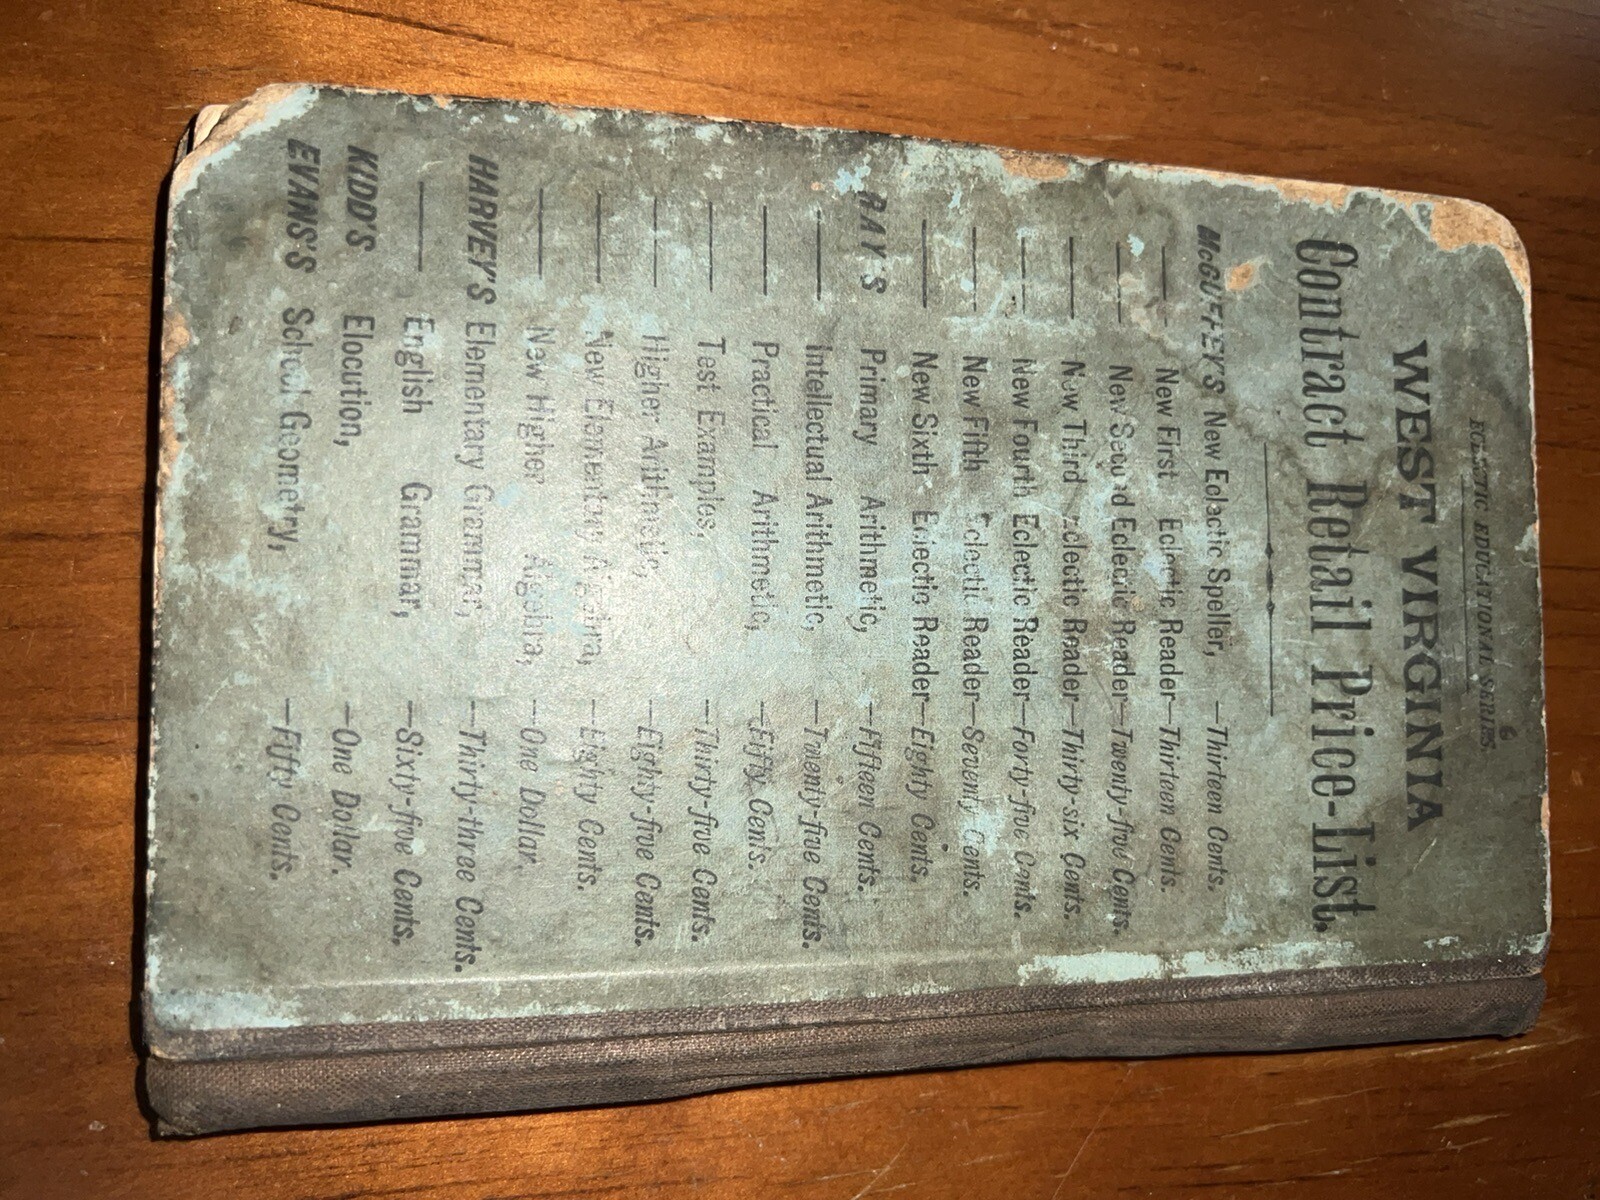 ECLECTIC EDUCATIONAL SERIES.
WEST VIRGINIA
Contract Retail Price-List.
McGUFFEY'S New Eclectic Speller, —Thirteen Cents.
—— New First Eclectic Reader—Thirteen Cents.
—— New Second Eclectic Reader—Twenty-five Cents.
—— New Third Eclectic Reader—Thirty-six Cents.
—— New Fourth Eclectic Reader—Forty-five Cents.
—— New Fifth Eclectic Reader—Seventy Cents.
—— New Sixth Eclectic Reader—Eighty Cents.
RAY'S Primary Arithmetic, —Fifteen Cents.
—— Intellectual Arithmetic, —Twenty-five Cents.
—— Practical Arithmetic, —Fifty Cents.
—— Test Examples, —Thirty-five Cents.
—— Higher Arithmetic, —Eighty-five Cents.
—— New Elementary Algebra, —Eighty Cents.
—— New Higher Algebra, —One Dollar.
HARVEY'S Elementary Grammar, —Thirty-three Cents.
—— English Grammar, —Sixty-five Cents.
KIDD'S Elocution, —One Dollar.
EVANS'S School Geometry, —Fifty Cents.